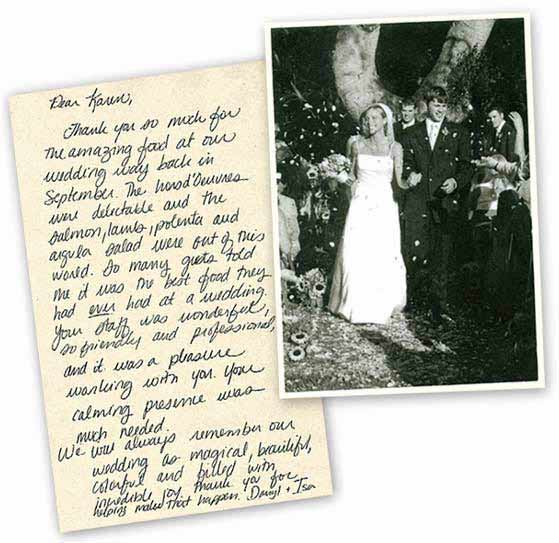 Dear Karen,
Thank you so much for
the amazing food at our
wedding way back in
September. The Horsd'Oeuvres
were delectable and the
salmon, lamb, polenta and
argula salad were out of this
world. So many guests told
me it was the best food they
had ever had at a wedding.
Your staff was wonderful,
so friendly and professional,
and it was a pleasure
working with you. Your
calming presence was
much needed.
We will always remember our
wedding as magical, beautiful,
colorful and filled with
incredible joy. Thank you for
helping make that happen. Darryl + Isa